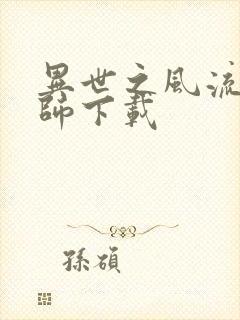 異世之風流
師下載
孫碩